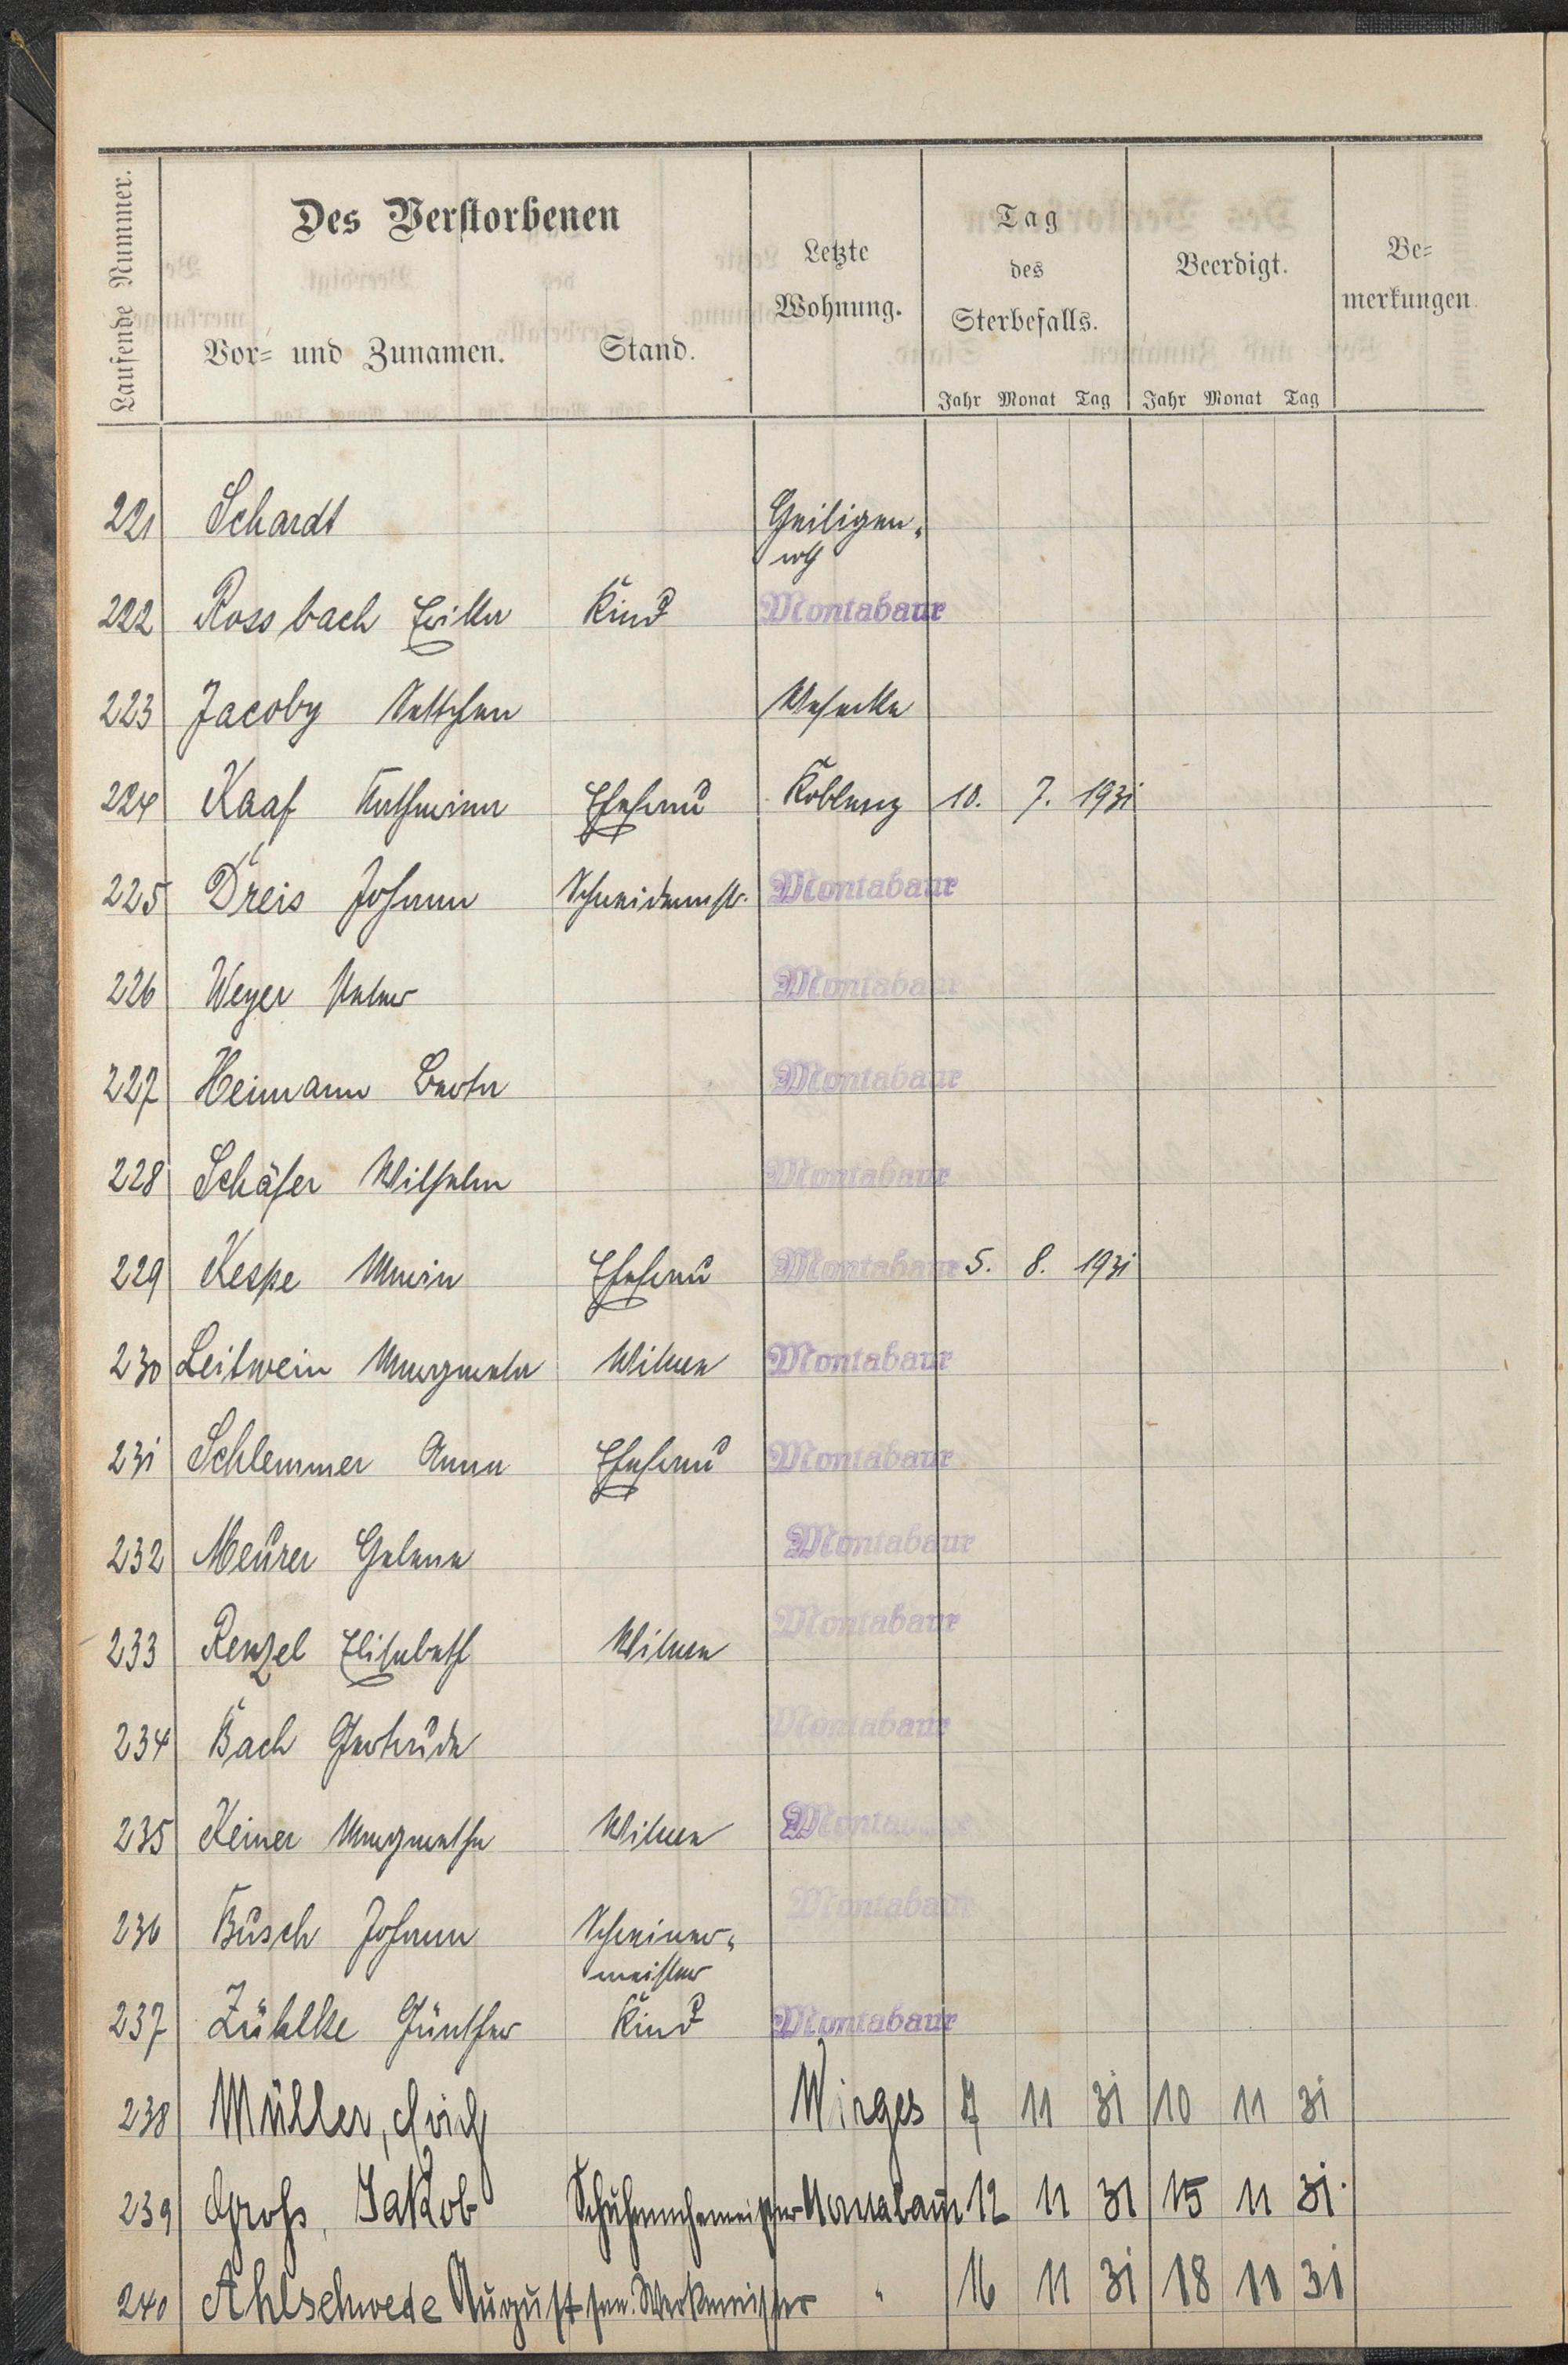 Laufende Nummer.
Des Verstorbenen
Vor= und Zunamen.
Stand.
Letzte
Wohnung.
Tag
des
Sterbefalls.
Beerdigt.
Be=
merkungen.
Jahr Monat Tag Jahr Monat Tag
221 Schardt Heiligen=
roth
222 Rossbach Erika Kind Montabaur
223 Jacoby Settchen
224 Kaaf Katharina Ehefrau Koblenz 10. 7. 1931
225 Dreis Johann Schneidermstr. Montabaur
226 Weyer Peter Montabaur
227 Heimann Berta Montabaur
228 Schäfer Wilhelm Montabaur
229 Kespe Maria Ehefrau Montabaur 5. 8. 1931
230 Leitwein Margareta Witwe Montabaur
231 Schlemmer Anna Ehefrau Montabaur
232 Meurer Helene Montabaur
233 Renzel Elisabeth Witwe Montabaur
234 Bach Gertrude Montabaur
235 Keiner Margaretha Witwe Montabaur
236 Busch Johann Schreiner= Montabaur
meister
237 Zühlke Günther Kind Montabaur
238 Müller, Wirges 7 11 31 10 11 31
239 Groß, Jakob Schuhmachermeister Montabaur 12 11 31 15 11 31.
240 Ahlschwede August sen. Werkmeister " 16 11 31 18 11 31